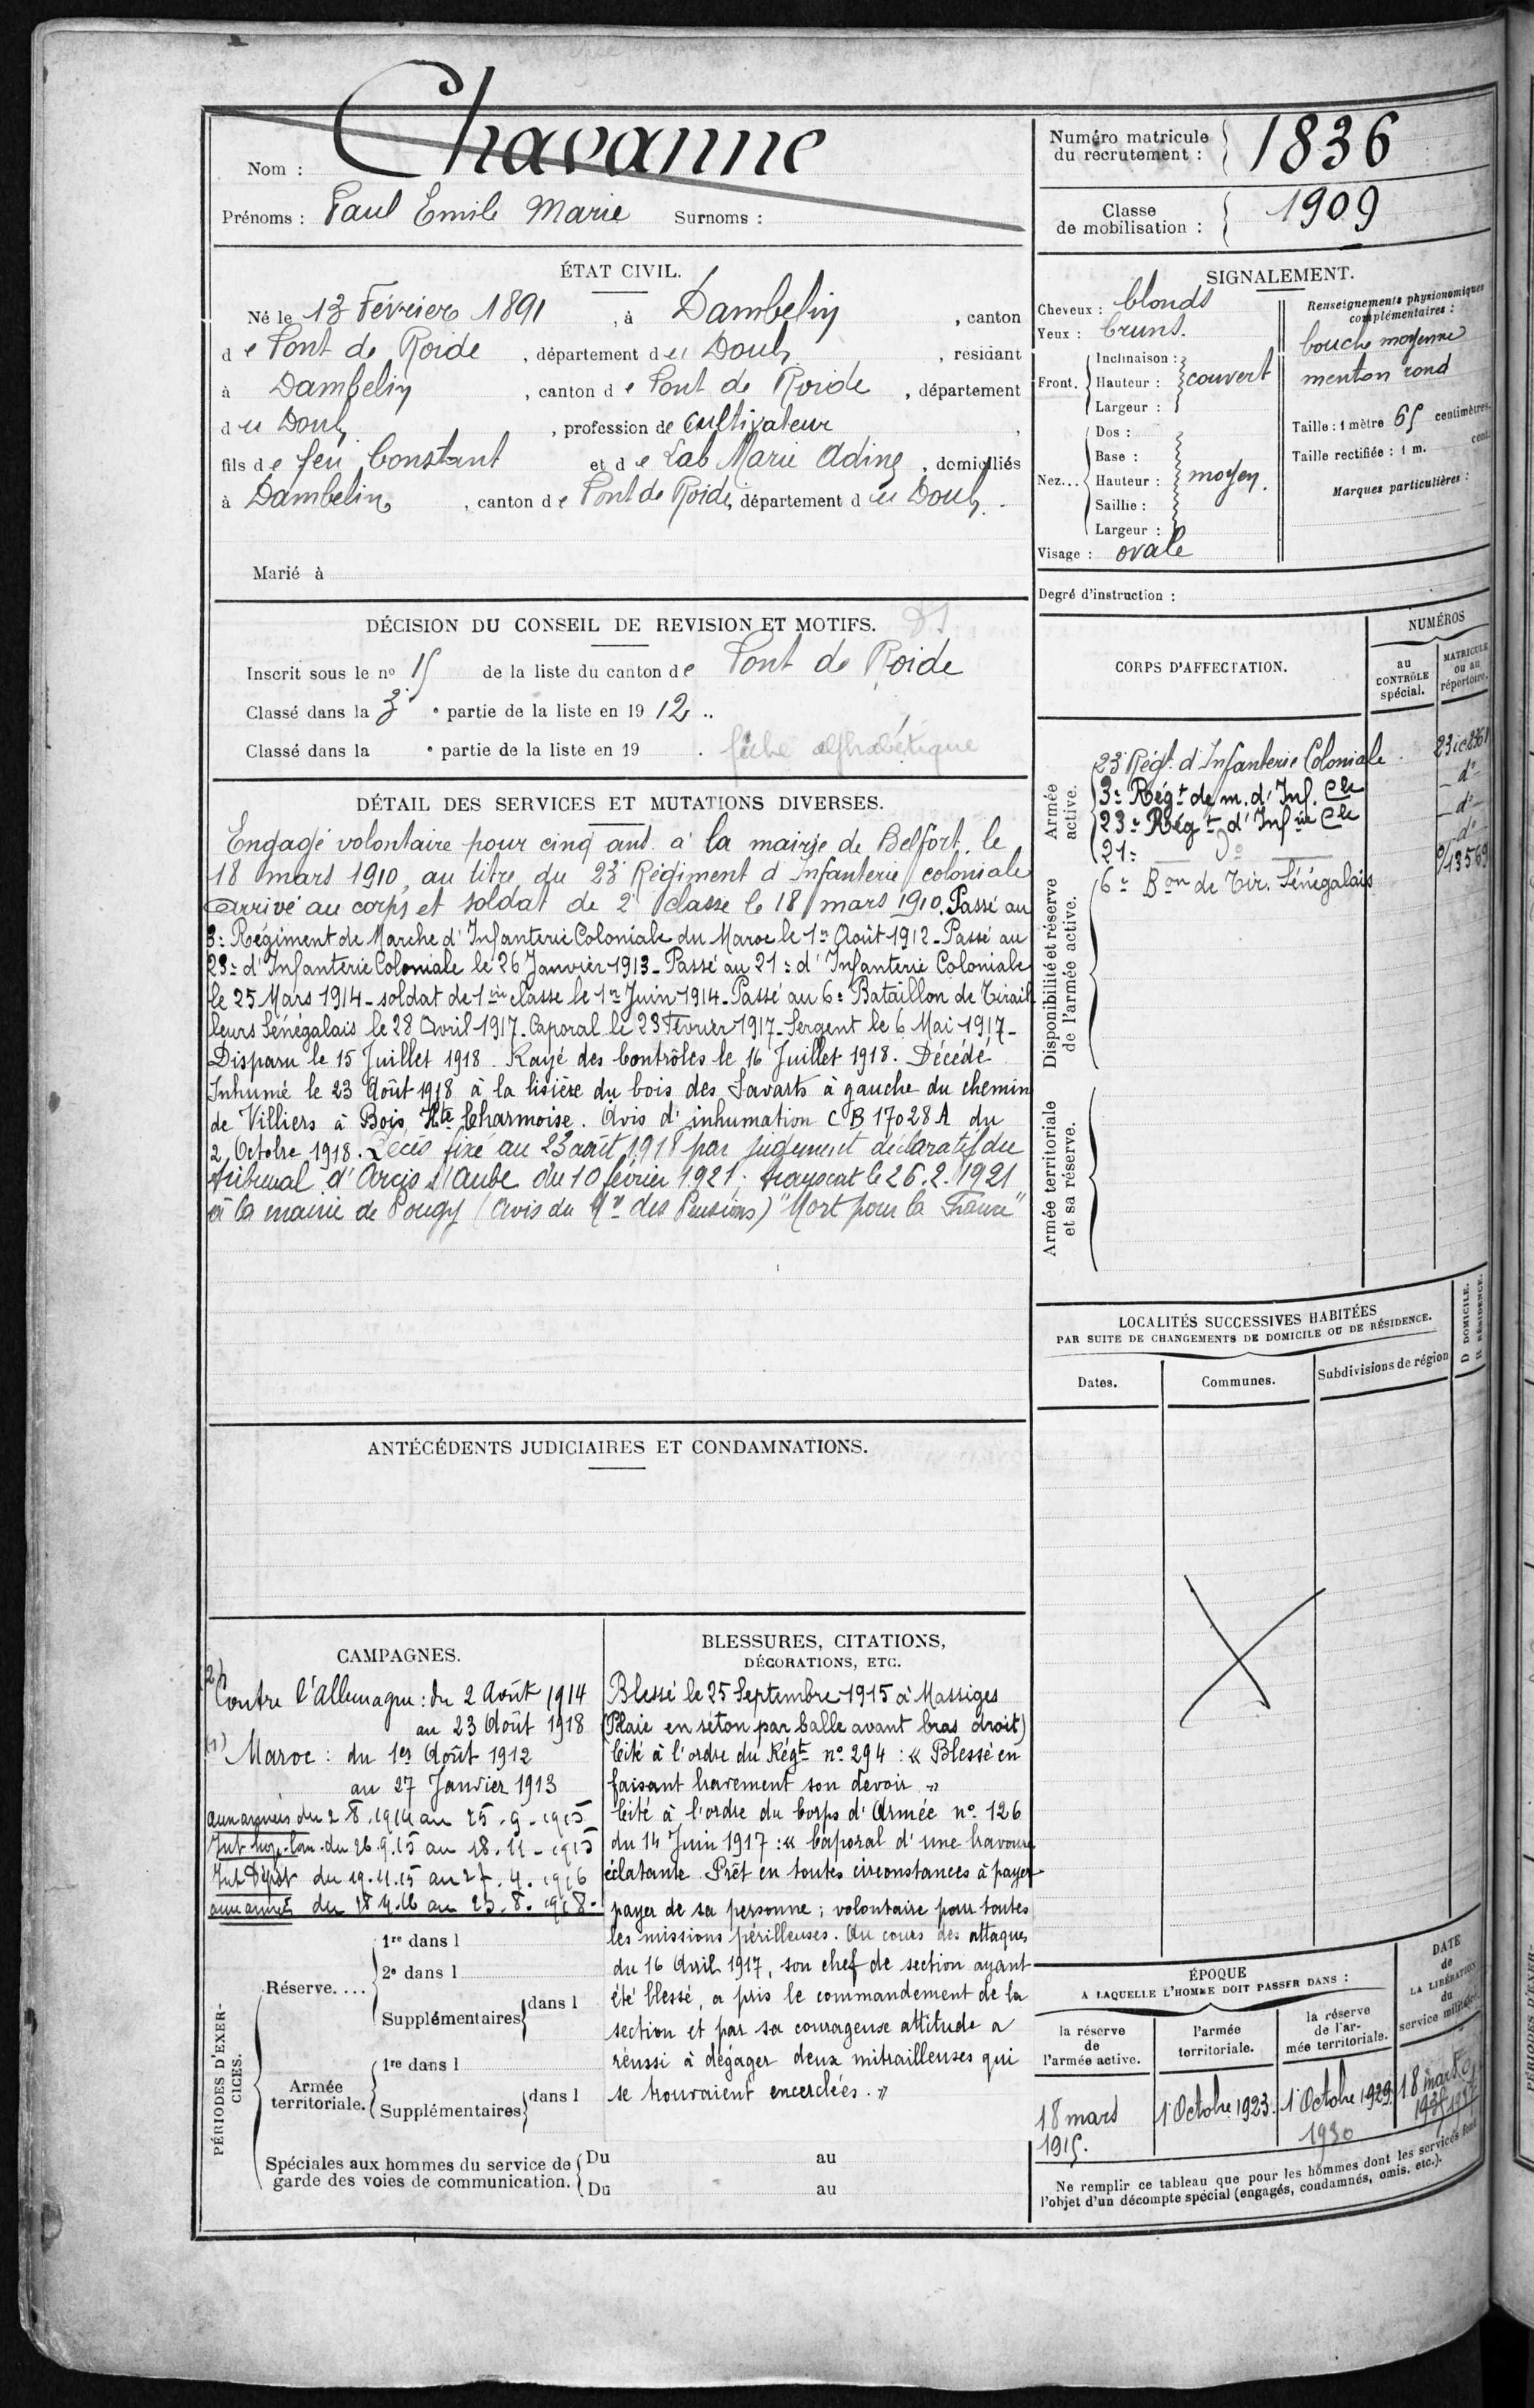 Nom : Chavanne
Prénoms : Paul Emile Marie Surnoms :
Numéro matricule du recrutement : 1836
Classe de mobilisation : 1909
ÉTAT CIVIL.
Né le 13 Février 1891, à Dambelin, canton
de Pont de Roide, département du Doubs, résidant
à Dambelin, canton de Pont de Roide, département
du Doubs, profession de cultivateur,
fils de feu Constant et de Lab Marie Adine, domiciliés
à Dambelin, canton de Pont de Roide, département du Doubs.
Marié à
SIGNALEMENT.
Cheveux : blonds
Yeux : bruns.
Front. Inclinaison :
Hauteur : couvert
Largeur :
Nez... Dos :
Base :
Hauteur : moyen.
Saillie :
Largeur :
Visage : ovale
Renseignements physionomiques
complémentaires :
bouche moyenne
menton rond
Taille : 1 mètre 65 centimètres.
Taille rectifiée : 1 m. cent.
Marques particulières :
Degré d'instruction :
DÉCISION DU CONSEIL DE REVISION ET MOTIFS.
Inscrit sous le no 15 de la liste du canton de Pont de Roide
Classé dans la 3e partie de la liste en 1912.
Classé dans la e partie de la liste en 19 .
fiche alphabétique
DÉTAIL DES SERVICES ET MUTATIONS DIVERSES.
Engagé volontaire pour cinq ans à la mairie de Belfort, le
18 mars 1910, au titre du 23e Régiment d'Infanterie coloniale
Arrivé au corps et soldat de 2e classe le 18 mars 1910. Passé au
3e Régiment de Marche d'Infanterie Coloniale du Maroc le 1er Août 1912 - Passé au
23e d'Infanterie Coloniale le 26 Janvier 1913 - Passé au 21e d'Infanterie Coloniale
le 25 Mars 1914 - soldat de 1ère classe le 1er Juin 1914 - Passé au 6e Bataillon de Tirail
leurs Sénégalais le 28 Avril 1917. Caporal le 23 Février 1917 - Sergent le 6 Mai 1917 -
Disparu le 15 Juillet 1918. Rayé des Contrôles le 16 Juillet 1918. Décédé
Inhumé le 23 Août 1918 à la lisière du bois des Savarts à gauche du chemin
de Villiers à Bois Hte Charmoise. Avis d'inhumation CB 17028 A du
2 Octobre 1918. Décès fixé au 23 août 1918 par jugement déclaratif du
tribunal d'Arcis s/Aube du 10 février 1921, transcrit le 26.2.1921
à la mairie de Pougy (Avis du Mre des Pensions) "Mort pour la France"
CORPS D'AFFECTATION.
NUMÉROS
au CONTRÔLE spécial.
MATRICULE ou au répertoire.
Armée active.
23e Régt d'Infanterie Coloniale
3e Régt de m. d'Inf. Cle
- do -
23e Régt d'Infie Cle
- do -
21e do
- do
6e Bon de Tir. Sénégalais
13569
Disponibilité et réserve de l'armée active.
Armée territoriale et sa réserve.
LOCALITÉS SUCCESSIVES HABITÉES
PAR SUITE DE CHANGEMENTS DE DOMICILE OU DE RÉSIDENCE.
Dates.
Communes.
Subdivisions de région
D DOMICILE.
R RÉSIDENCE.
ANTÉCÉDENTS JUDICIAIRES ET CONDAMNATIONS.
CAMPAGNES.
(2) Contre l'Allemagne : du 2 Août 1914
au 23 Août 1918
(1) Maroc : du 1er Août 1912
au 27 Janvier 1913
Aux armées du 2.8.1914 au 25.9.1915
Int. du 26.9.15 au 18.11.1915
Int Dépôt du 19.11.15 au 27.4.1916
aux armées du 28.4.16 au 23.8.1918.
BLESSURES, CITATIONS,
DÉCORATIONS, ETC.
Blessé le 25 Septembre 1915 à Massiges
(Plaie en séton par balle avant bras droit)
Cité à l'ordre du Régt no 294 : « Blessé en
faisant bravement son devoir »
Cité à l'ordre du Corps d'Armée no 126
du 14 Juin 1917 : « Caporal d'une bravoure
éclatante. Prêt en toutes circonstances à payer
payer de sa personne ; volontaire pour toutes
les missions périlleuses. Au cours des attaques
du 16 Avril 1917, son chef de section ayant
été blessé, a pris le commandement de la
section et par sa courageuse attitude a
réussi à dégager deux mitrailleuses qui
se trouvaient encerclées. »
PÉRIODES D'EXERCICES.
Réserve....
1re dans l
2e dans l
Supplémentaires dans l
Armée territoriale.
1re dans l
Supplémentaires dans l
Spéciales aux hommes du service de
garde des voies de communication.
Du au
Du au
ÉPOQUE
A LAQUELLE L'HOMME DOIT PASSER DANS :
la réserve de l'armée active.
l'armée territoriale.
la réserve de l'armée territoriale.
DATE de LA LIBÉRATION du service militaire.
18 mars 1915.
1er Octobre 1923.
1er Octobre 1929.
1930
18 mars
Ne remplir ce tableau que pour les hommes dont les services font
l'objet d'un décompte spécial (engagés, condamnés, omis, etc.).